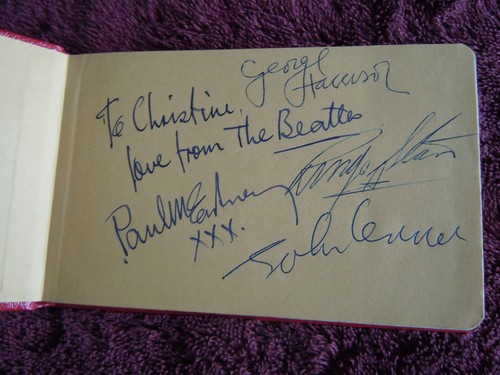 George
Harrison
To Christine,
love from The Beatles
Paul McCartney
xxx.
Ringo Starr
John Lennon